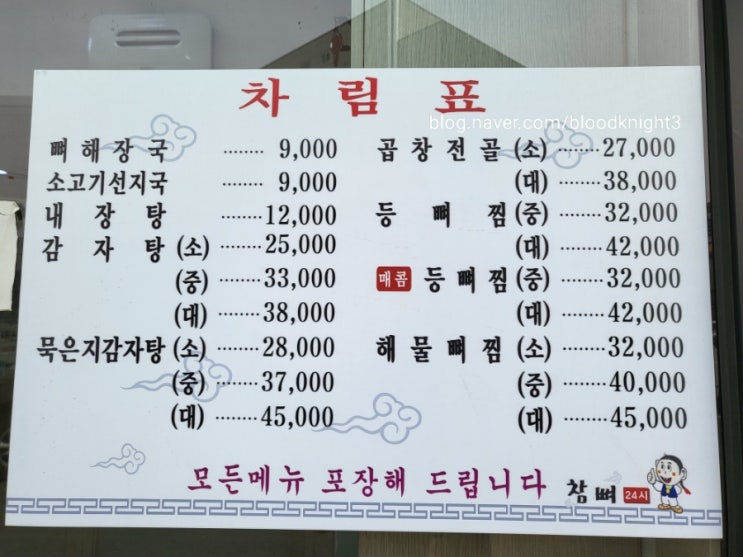 차림표
blog.naver.com/bloodknight3
뼈해장국 ········ 9,000
소고기선지국 ········ 9,000
내장탕 ········ 12,000
감자탕 (소) ········ 25,000
(중) ········ 33,000
(대) ········ 38,000
묵은지감자탕 (소) ········ 28,000
(중) ········ 37,000
(대) ········ 45,000
곱창전골 (소) ········ 27,000
(대) ········ 38,000
등뼈찜 (중) ········ 32,000
(대) ········ 42,000
매콤 등뼈찜 (중) ········ 32,000
(대) ········ 42,000
해물뼈찜 (소) ········ 32,000
(중) ········ 40,000
(대) ········ 45,000
모든메뉴 포장해 드립니다
참뼈 24시